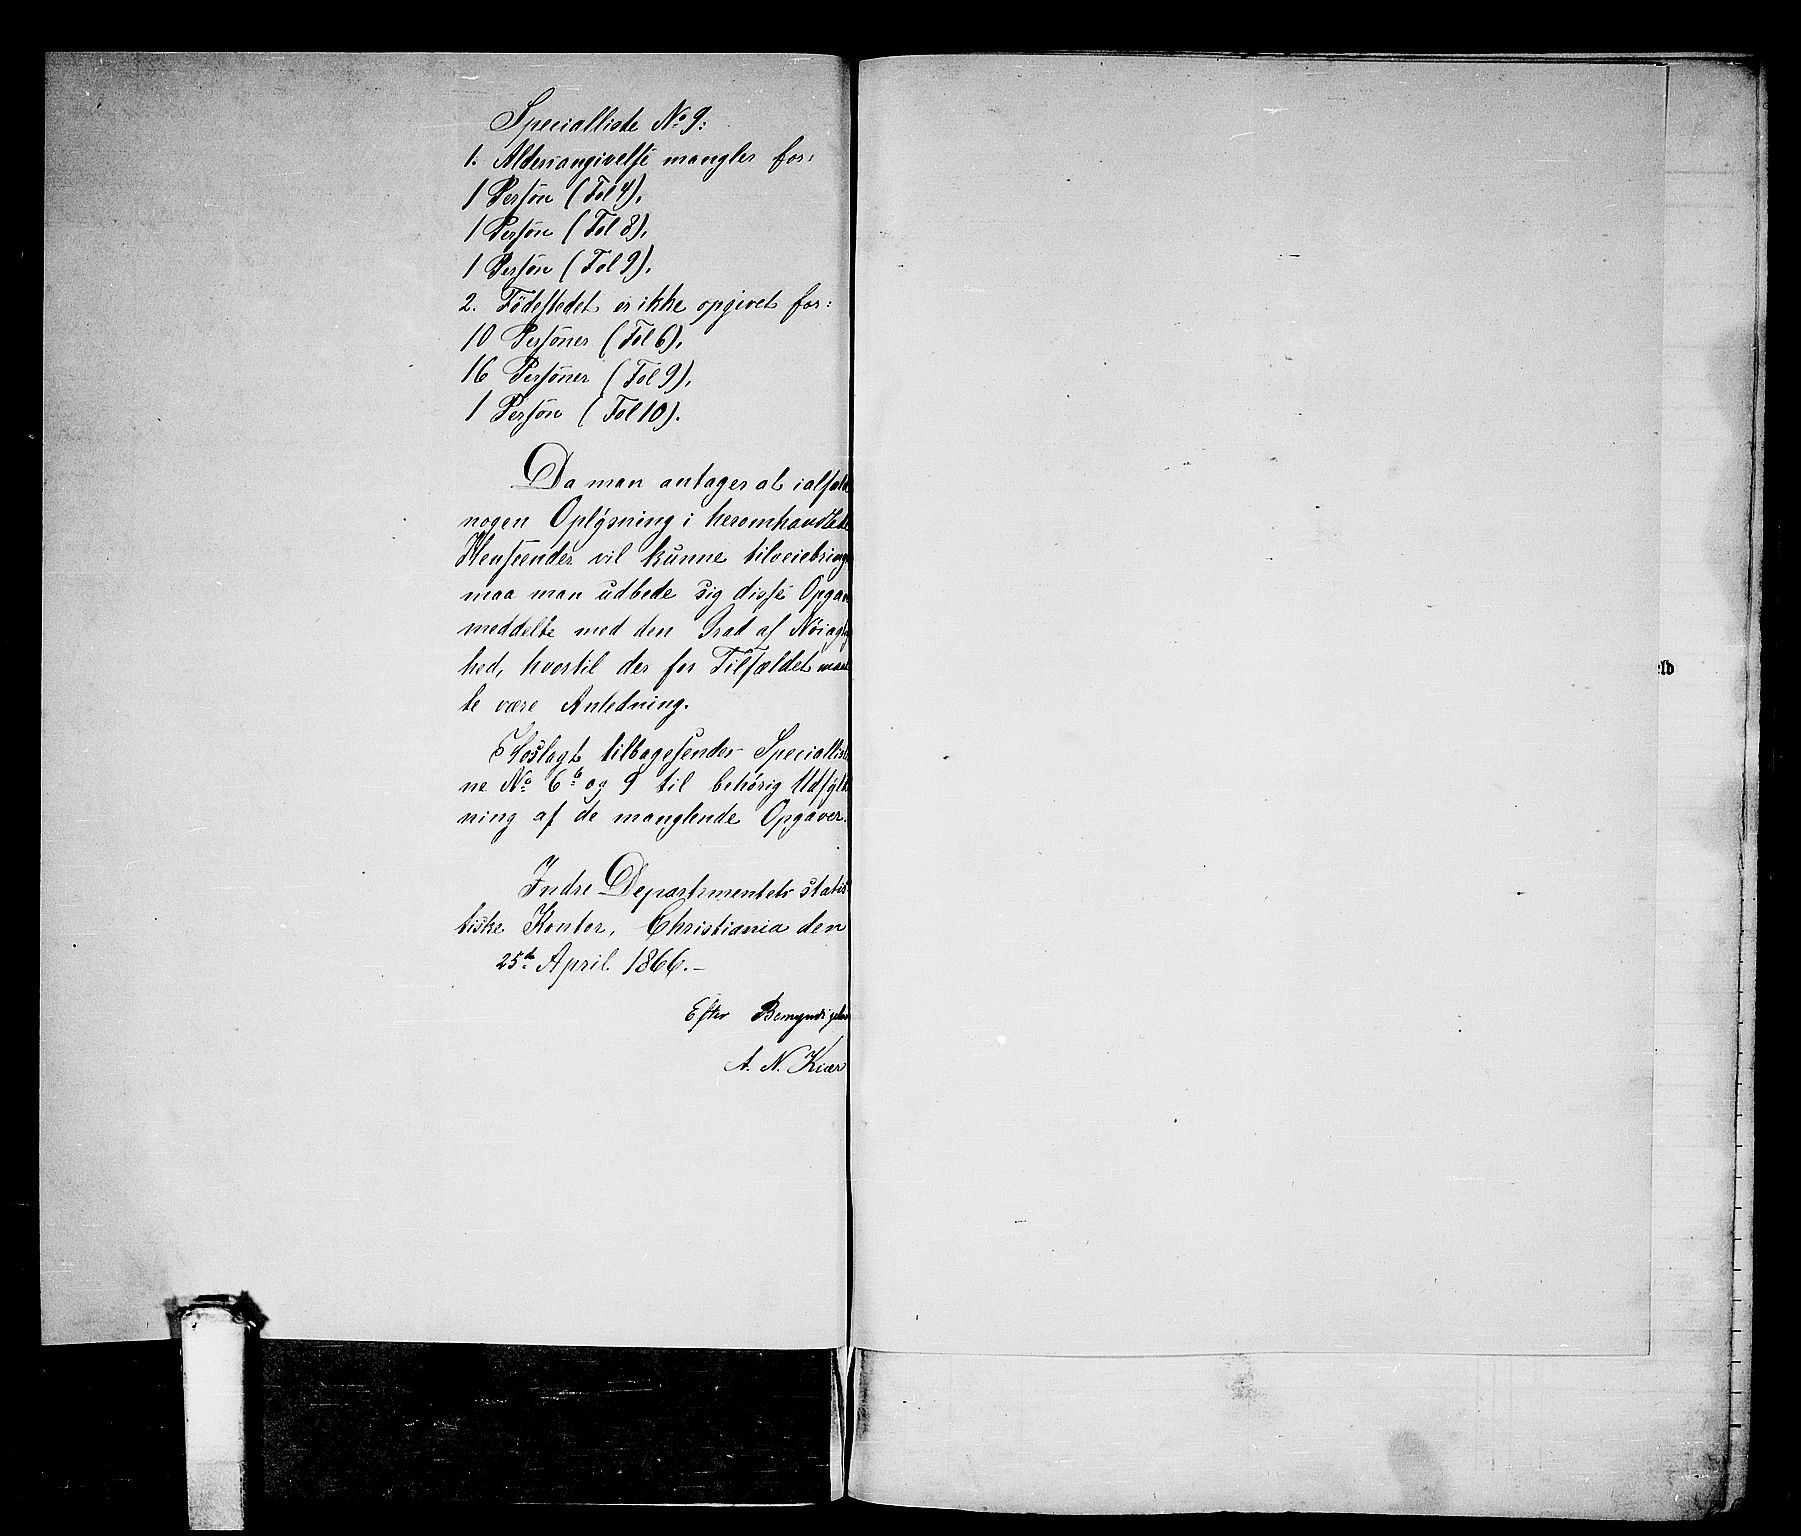 Specialliste No 9:
1. Aldersangivelse mangler for:
1 Person (Fol 4),
1 Person (Fol 8),
1 Person (Fol 9),
2. Födestedet er ikke opgivet for:
10 Personer (Fol 6),
16 Personer (Fol 9),
1 Person (Fol 10).
Da man antager at ialfald
nogen Oplysning i heromhandlede
Henseender vil kunne tilveiebring
maa man udbede sig disse Opgav
meddelte med den Grad af Nöiagtig
hed, hvortil der for Tilfældet maat
te være Anledning.
Hoslagt tilbagesender Speciallist
ne No 6b og 9 til behörig Udfyld
ning af de manglende Opgaver.
Indre Departementets statis
tiske Kontor, Christiania den
25de April 1866.-
Efter Bemyndigelse
A. N. Kiær
elb